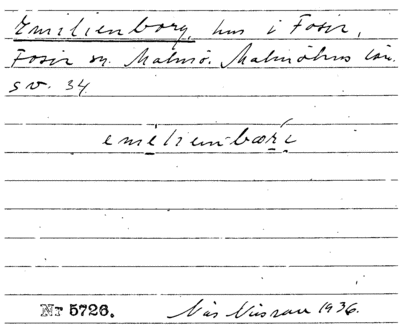 Emilienborg, hus i Fosie,
Fosie sn. Malmö. Malmöhus län.
s v. 34
emilienbærj
Nr 5726. Nils 1936.